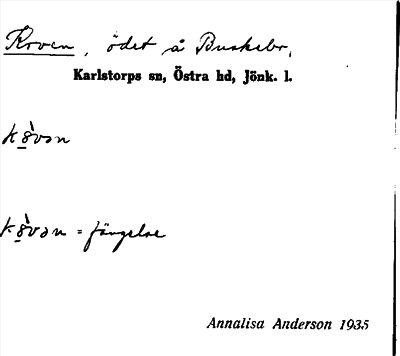 Kroven, ödet å Buskebr,
Karlstorps sn, Östra hd, Jönk. l.
kȣ̀vən
kȣ̀vən = fängelse
Annalisa Anderson 1935